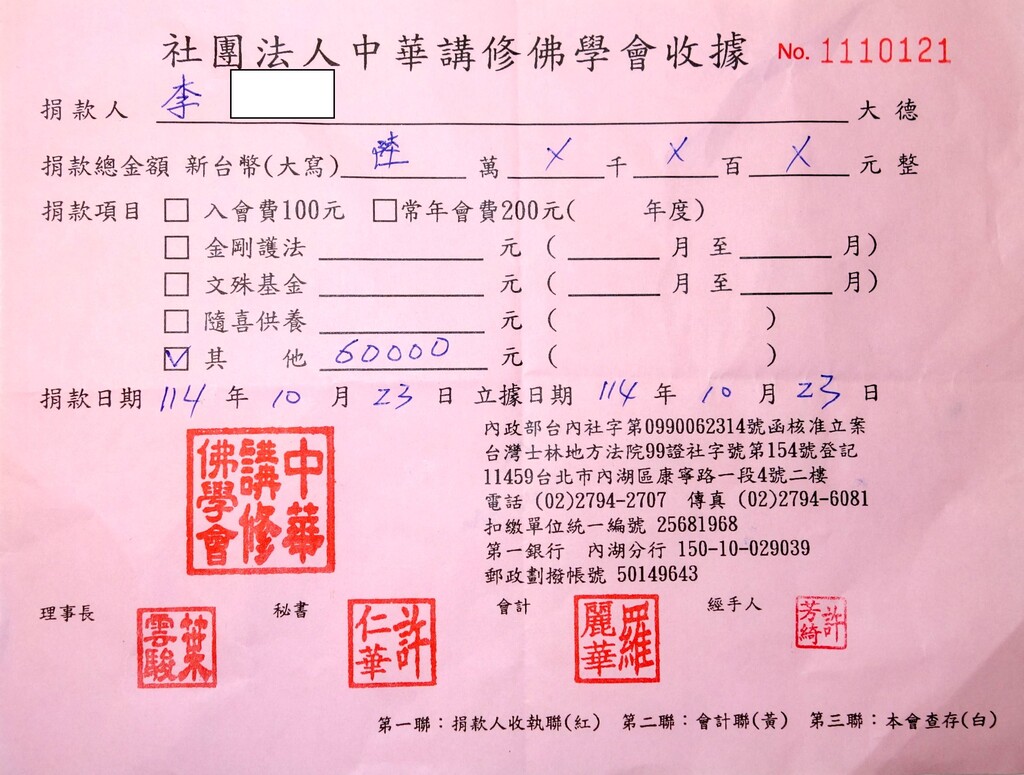 社團法人中華講修佛學會收據 No. 1110121
捐款人 李 大德
捐款總金額 新台幣(大寫) 陸 萬 X 千 X 百 X 元整
捐款項目 □ 入會費100元 □常年會費200元( 年度)
□ 金剛護法 ＿＿＿ 元 ( ＿＿＿ 月 至 ＿＿＿ 月)
□ 文殊基金 ＿＿＿ 元 ( ＿＿＿ 月 至 ＿＿＿ 月)
□ 隨喜供養 ＿＿＿ 元 ( )
☑ 其 他 60000 元 ( )
捐款日期 114 年 10 月 23 日 立據日期 114 年 10 月 23 日
中華講修佛學會
內政部台內社字第0990062314號函核准立案
台灣士林地方法院99證社字號第154號登記
11459台北市內湖區康寧路一段4號二樓
電話 (02)2794-2707 傳真 (02)2794-6081
扣繳單位統一編號 25681968
第一銀行 內湖分行 150-10-029039
郵政劃撥帳號 50149643
理事長 葉雲駿 秘書 許仁華 會計 羅麗華 經手人 許芳綺
第一聯：捐款人收執聯(紅) 第二聯：會計聯(黃) 第三聯：本會查存(白)